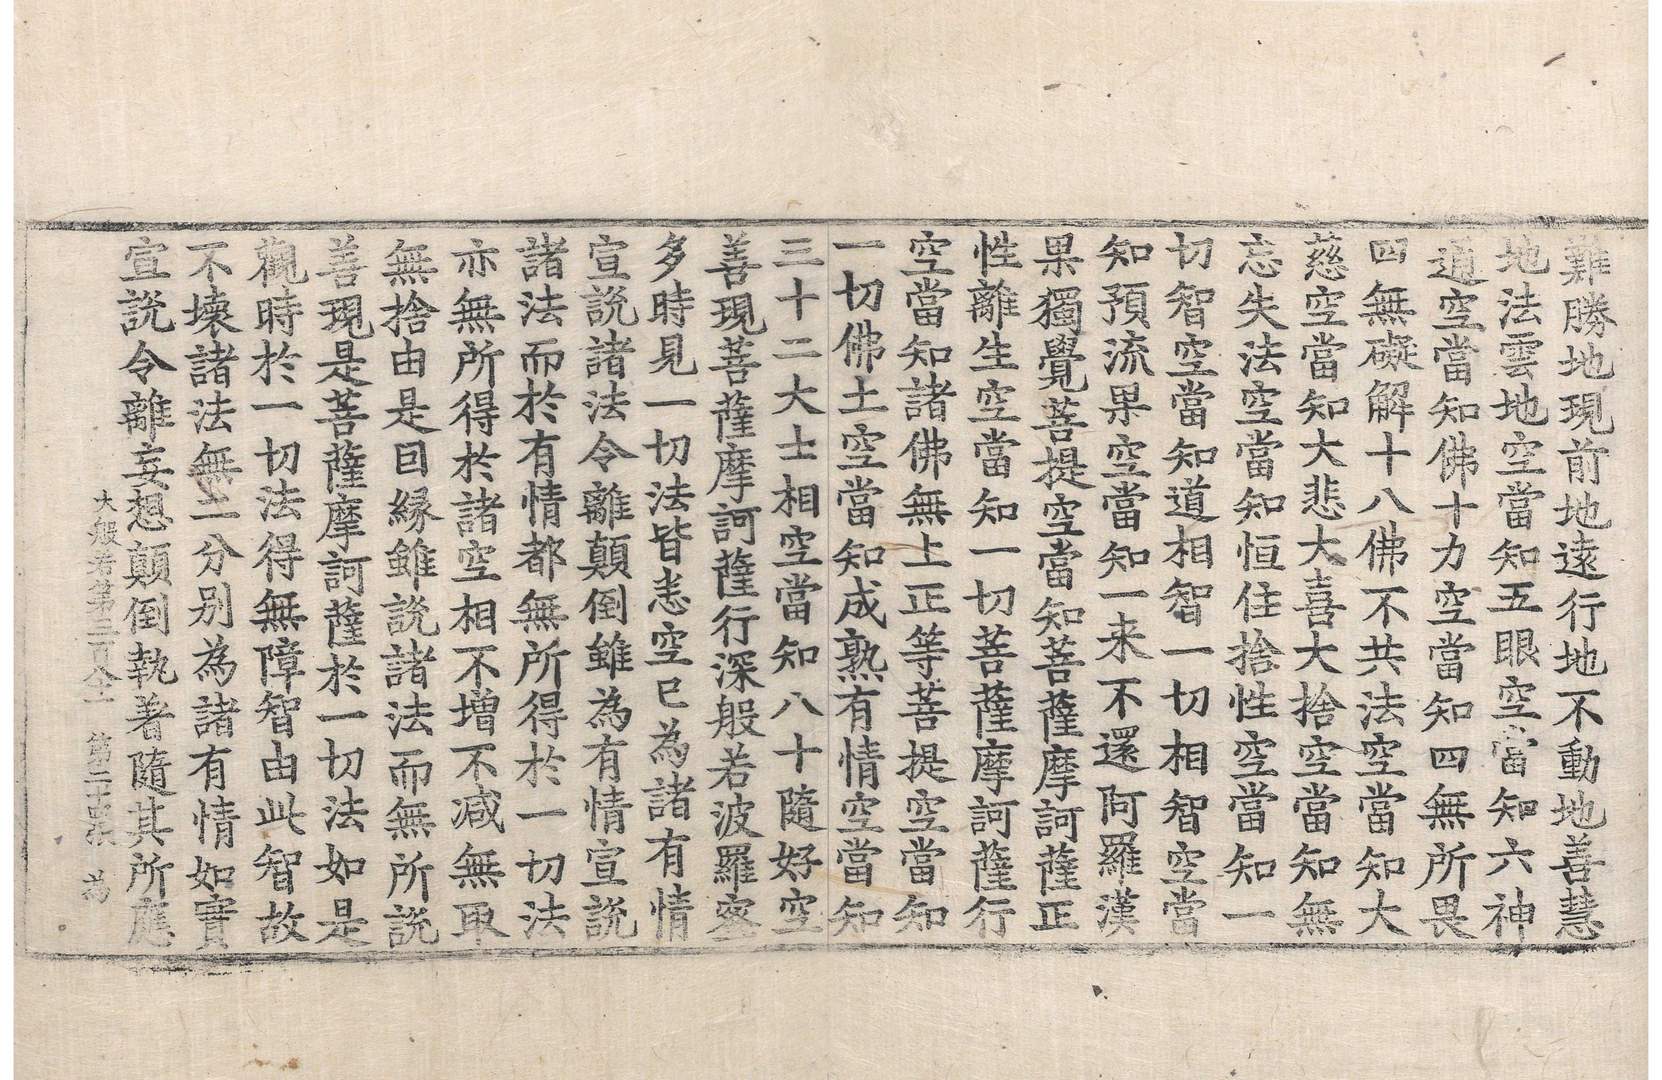 難勝地現前地遠行地不動地善慧
地法雲地空當知五眼空當知六神
通空當知佛十力空當知四無所畏
四無礙解十八佛不共法空當知大
慈空當知大悲大喜大捨空當知無
忘失法空當知恒住捨性空當知一
切智空當知道相智一切相智空當
知預流果空當知一来不還阿羅漢
果獨覺菩提空當知菩薩摩訶薩正
性離生空當知一切菩薩摩訶薩行
空當知諸佛無上正等菩提空當知
一切佛土空當知成熟有情空當知
三十二大士相空當知八十隨好空
善現菩薩摩訶薩行深般若波羅蜜
多時見一切法皆悉空已為諸有情
宣說諸法令離顛倒雖為有情宣說
諸法而於有情都無所得於一切法
亦無所得於諸空相不增不減無取
無捨由是因縁雖說諸法而無所說
善現是菩薩摩訶薩於一切法如是
觀時於一切法得無障智由此智故
不壞諸法無二分别為諸有情如實
宣說令離妄想顛倒執著隨其所應
大般若第三百八十 第二十四張 為